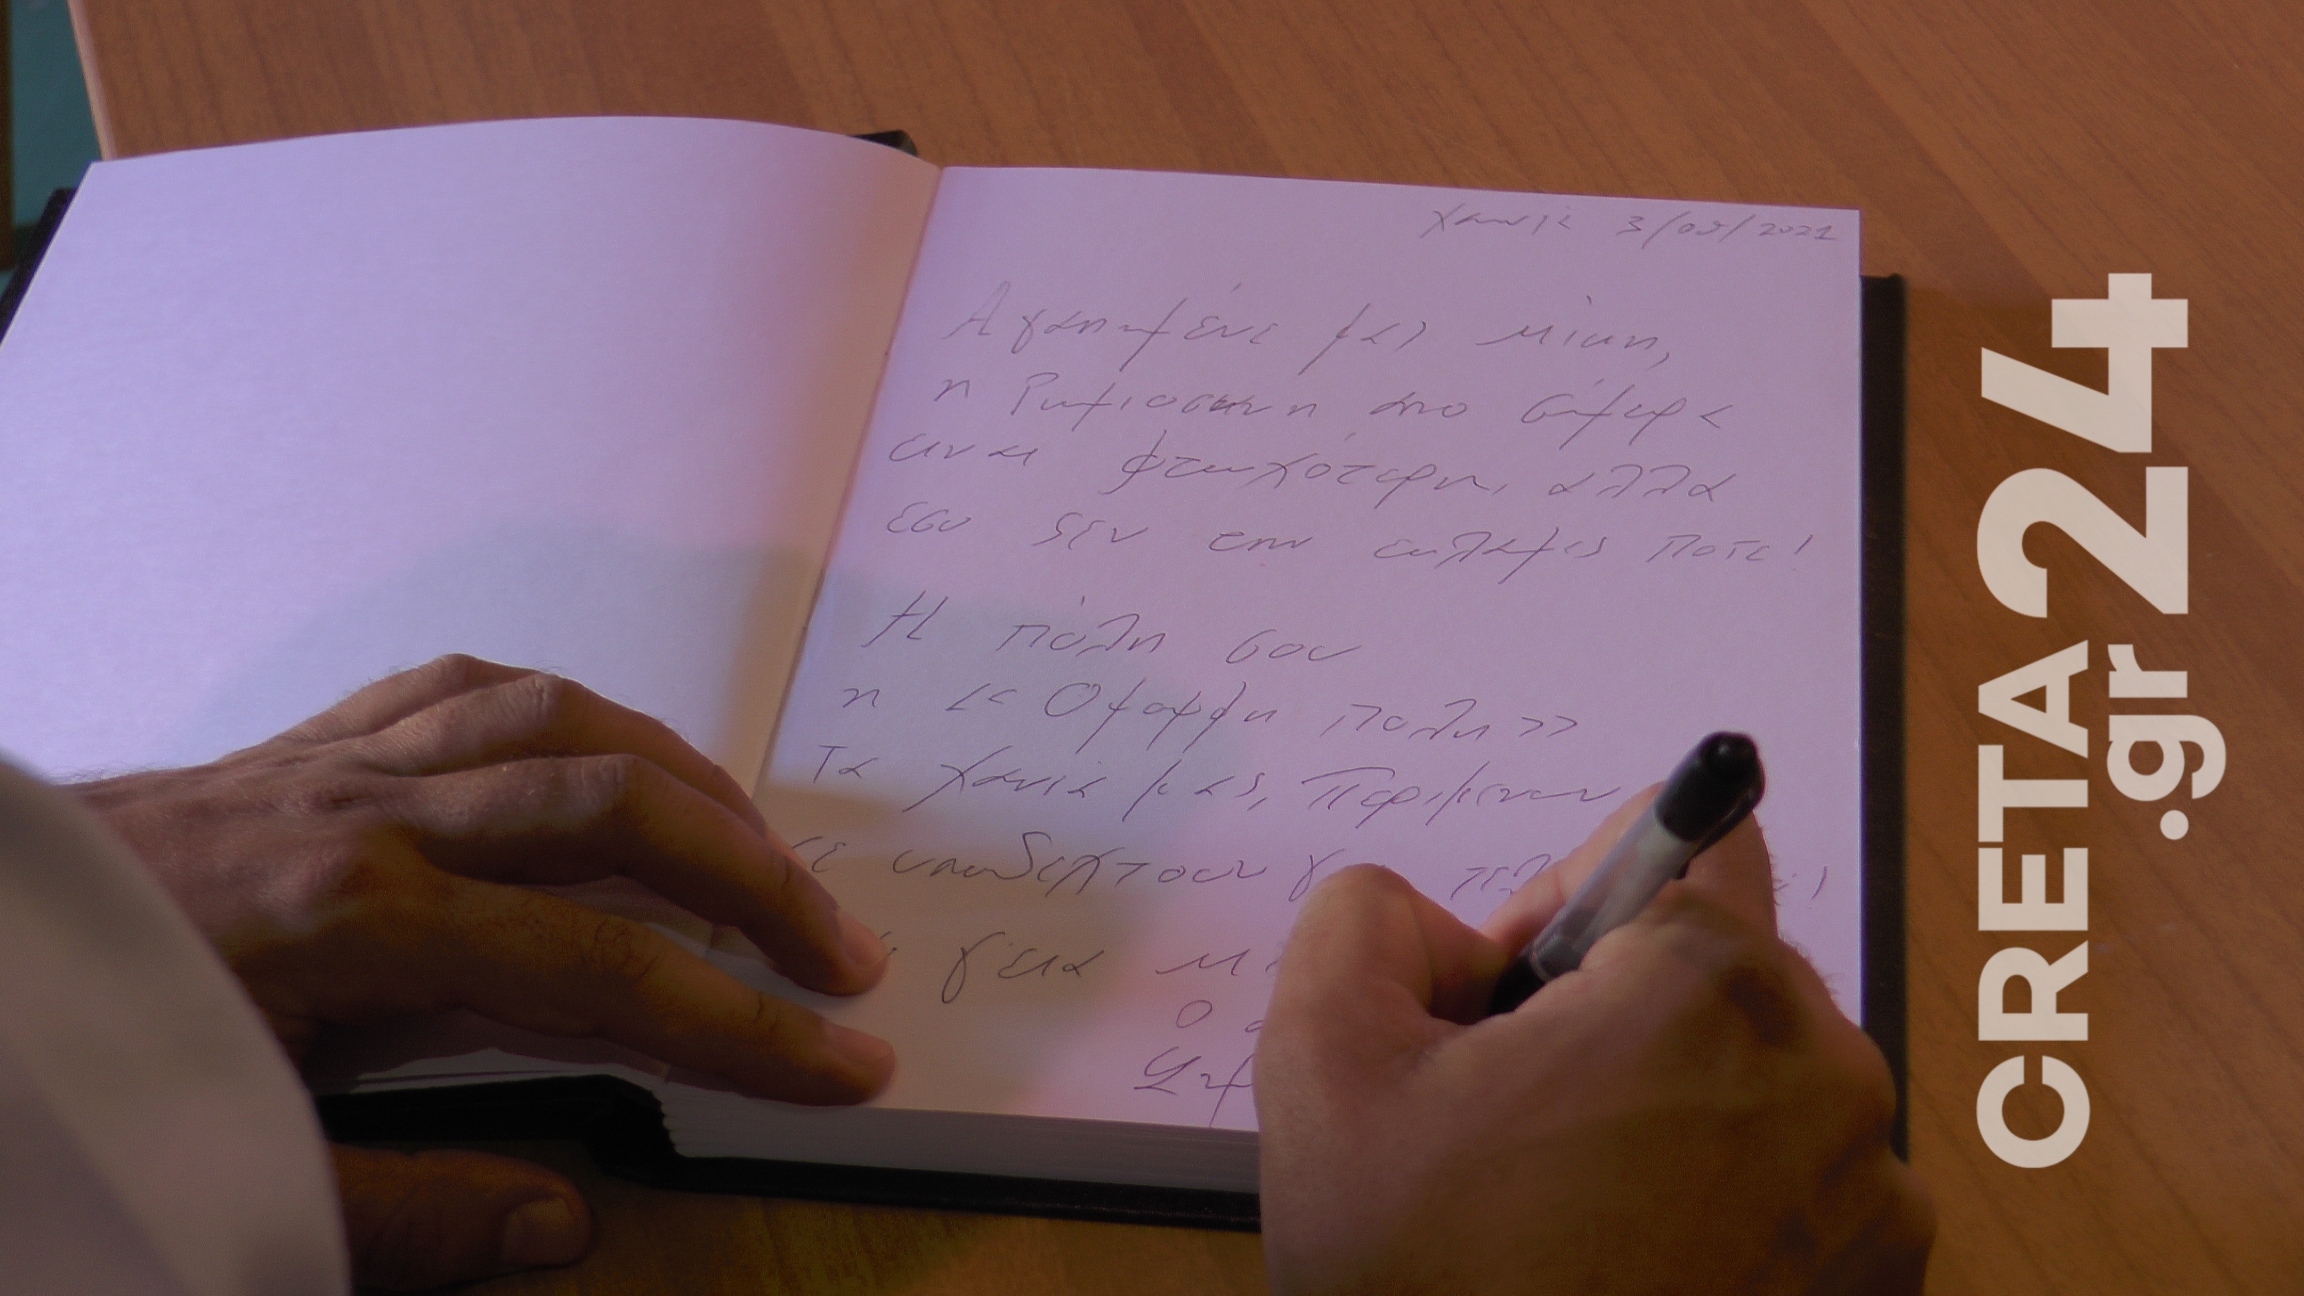 Χανιά 3/09/2021
Αγαπημένε μας Μίκη,
η Ρωμιοσύνη απο σήμερα
ειναι φτωχότερη, αλλά
εσυ δεν την έκλαψες ποτε!
Η πόλη σου
η << Ομορφη πολη >>
Τα χανιά μας, Περιμένουν
σε υποδεχτουν για
γεια
Ο
CRETA24
.gr